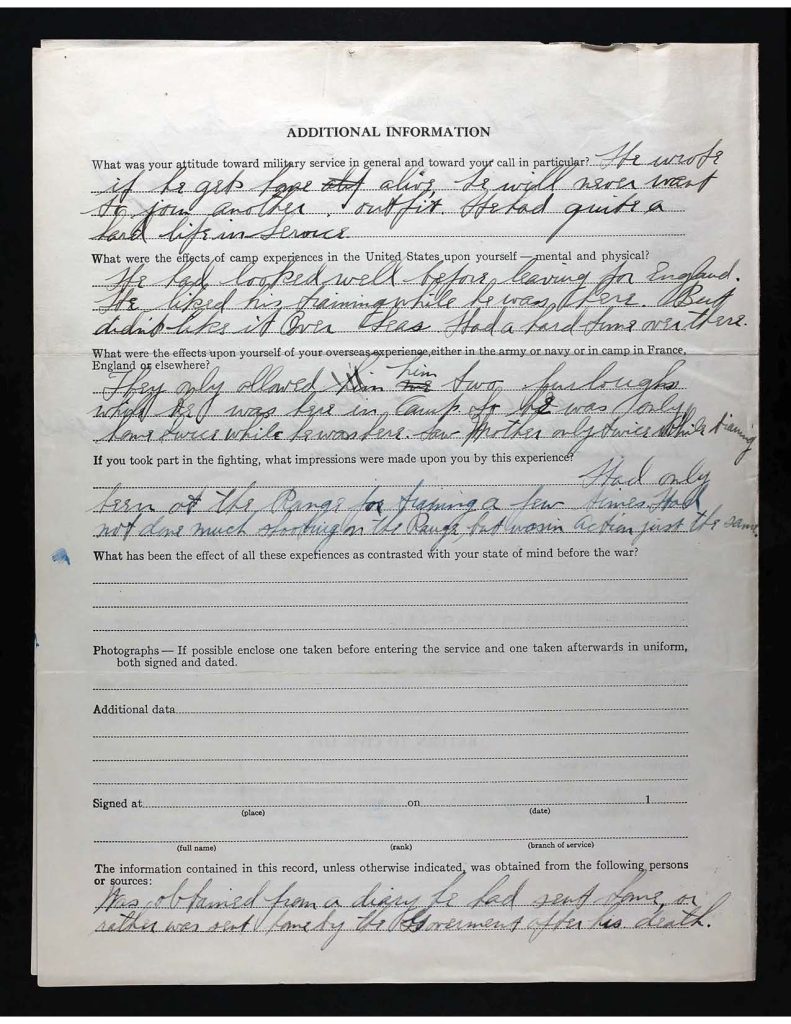 ADDITIONAL INFORMATION
What was your attitude toward military service in general and toward your call in particular? He wrote
if he gets home alive, he will never want
to join another outfit. He had quite a
hard life in service
What were the effects of camp experiences in the United States upon yourself — mental and physical?
He had looked well before leaving for England.
He liked his training while he was here. But
didn't like it Over Seas. Had a hard time over there.
What were the effects upon yourself of your overseas experience, either in the army or navy or in camp in France,
England or elsewhere?
They only allowed him two furloughs
while he was here in Camp so he was only
home twice while he was here. Saw Mother only twice while training
If you took part in the fighting, what impressions were made upon you by this experience?
Had only
been at the Range for training a few times. Had
not done much shooting on the Range, but was in action just the same.
What has been the effect of all these experiences as contrasted with your state of mind before the war?
Photographs — If possible enclose one taken before entering the service and one taken afterwards in uniform,
both signed and dated.
Additional data
Signed at on 1
(place) (date)
(full name) (rank) (branch of service)
The information contained in this record, unless otherwise indicated, was obtained from the following persons
or sources:
Was obtained from a diary he had sent home, or
rather was sent home by the Goverment after his death.